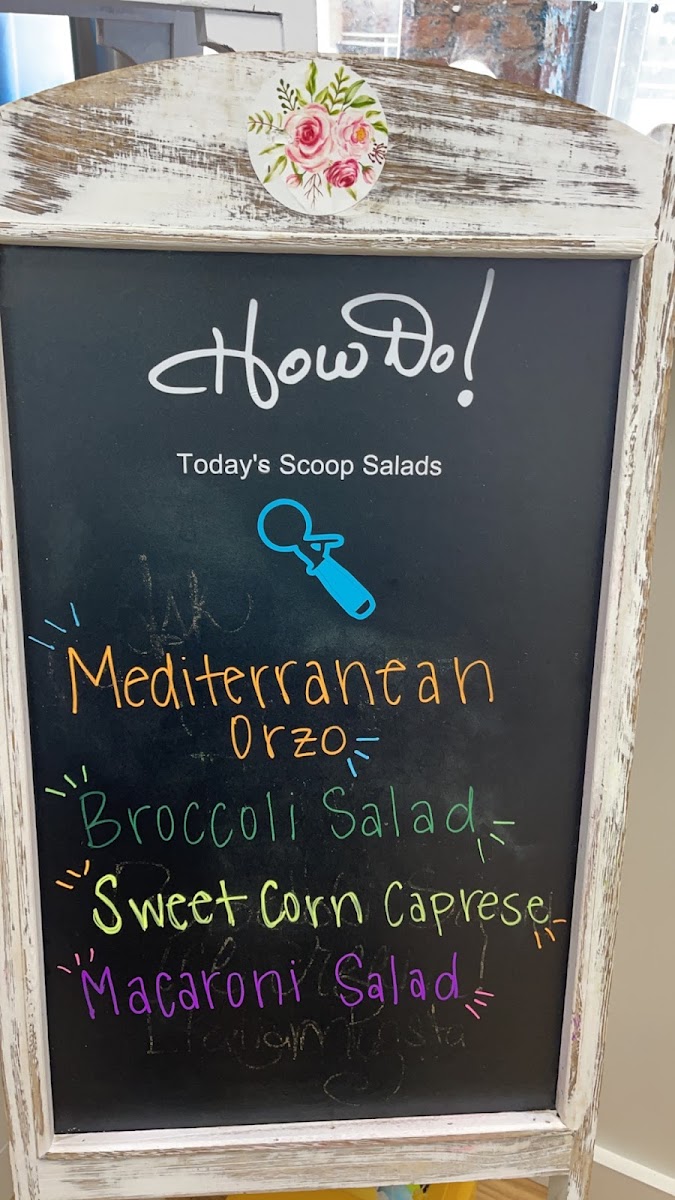 How Do!
Today's Scoop Salads
Mediterranean
Orzo
Broccoli Salad
Sweet Corn Caprese
Macaroni Salad